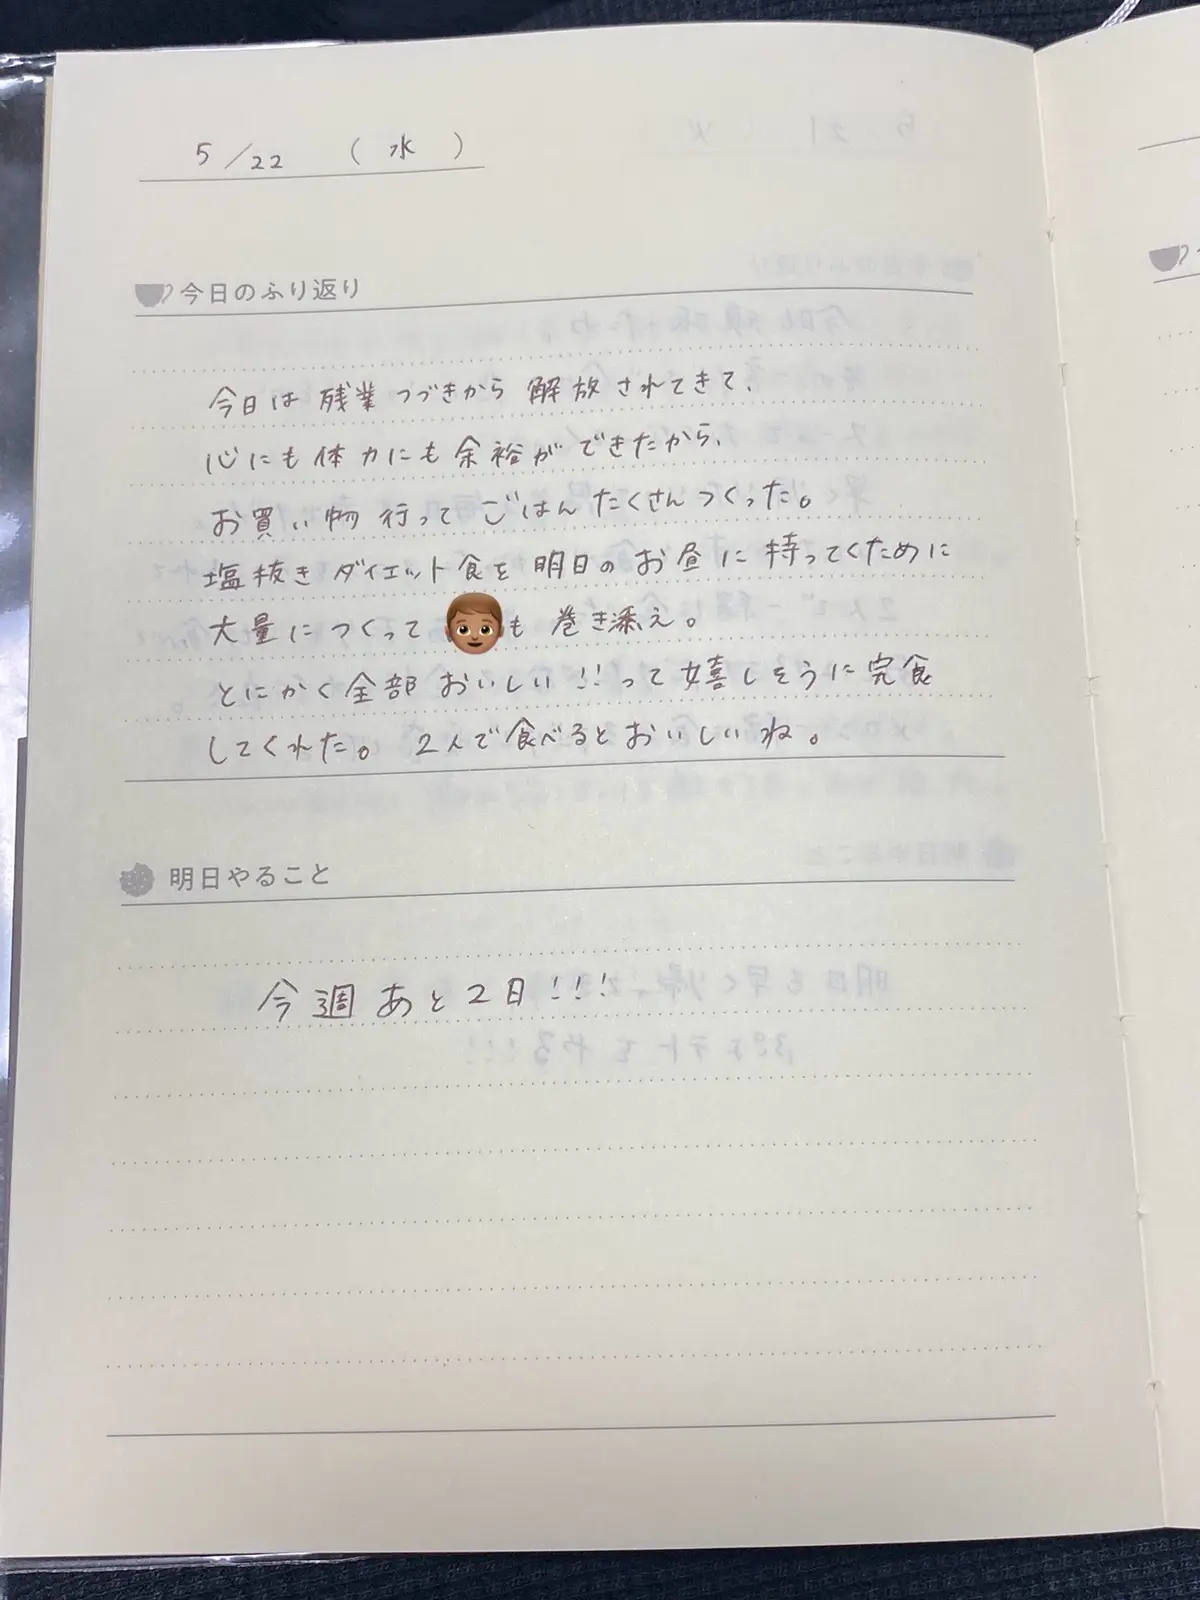 5/22 (水)
今日のふり返り
今日は残業つづきから解放されてきて、
心にも体力にも余裕ができたから、
お買い物行ってごはんたくさんつくった。
塩抜きダイエット食を明日のお昼に持ってくために
大量につくって も巻き添え。
とにかく全部おいしい!!って嬉しそうに完食
してくれた。2人で食べるとおいしいね。
明日やること
今週あと2日!!!